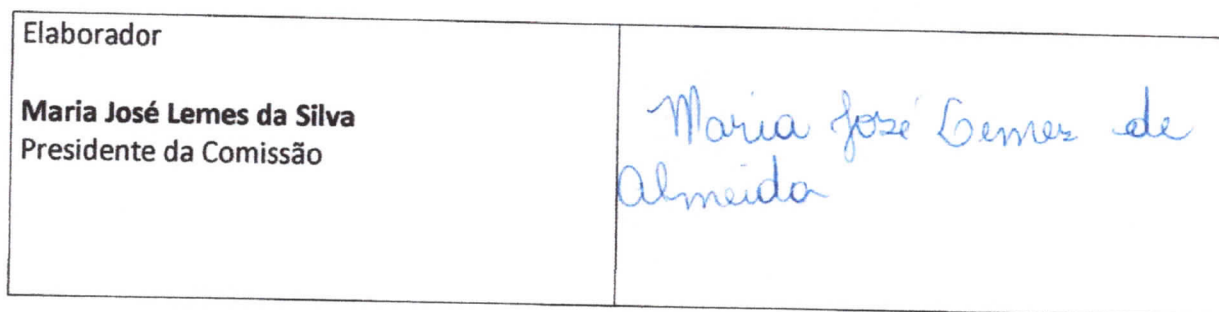 Elaborador
Maria José Lemes da Silva
Presidente da Comissão
Maria José Lemes de
Almeida